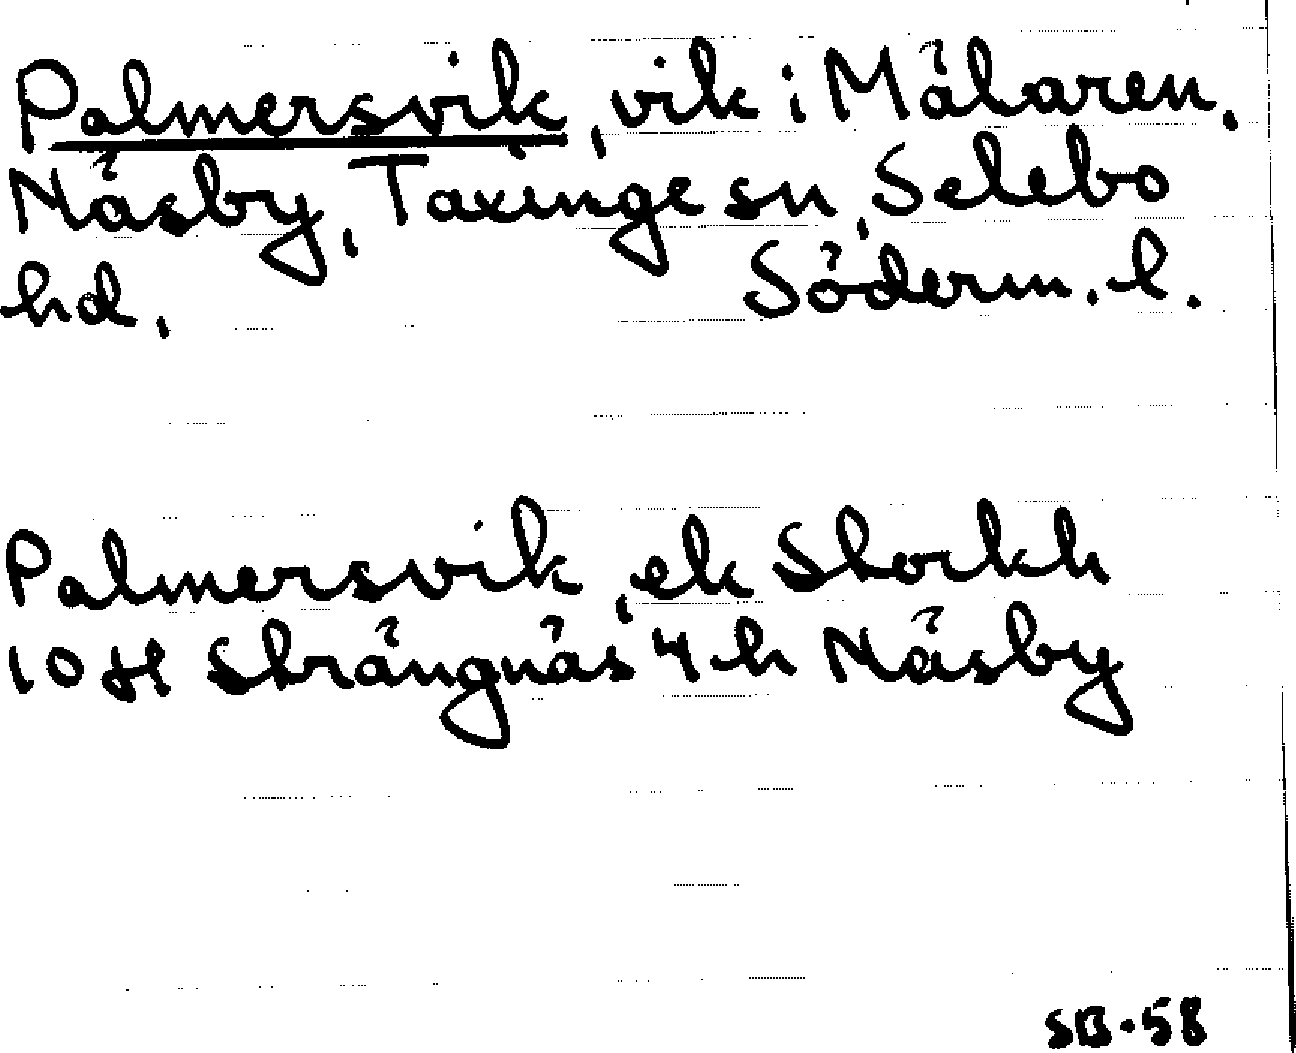 Palmersvik, vik i Mälaren,
Näsby, Taxinge sn, Selebo
hd, Söderm. l.
Palmersvik, ek Stockh
10 H Strängnäs 4 h Näsby
SB-58